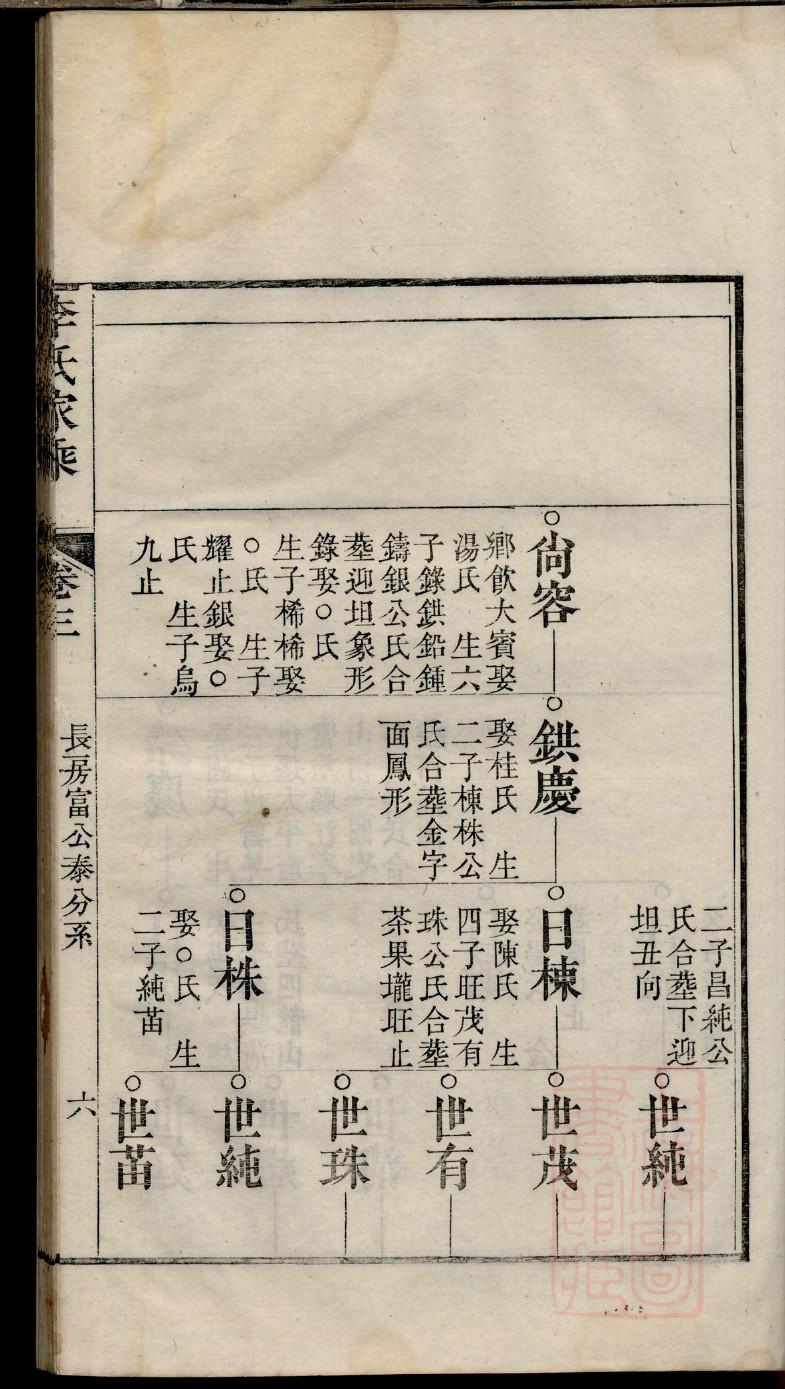 二子昌純公
氏合塟下迎
坦丑向
世純
尙容
鄉飲大賓娶
湯氏　生六
子錄鉷鉛鍾
鑄銀公氏合
塟迎坦象形
錄娶○氏
生子桸桸娶
○氏　生子
耀止銀娶○
氏　生子烏
九止
鉷慶
娶桂氏　生
二子棟株公
氏合塟金字
面鳳形
日棟
娶陳氏　生
四子旺茂有
珠公氏合塟
茶果壠旺止
世茂
世有
世珠
日株
娶○氏　生
二子純苗
世純
世苗
李氏家乘
卷三
長房富公泰分系
六